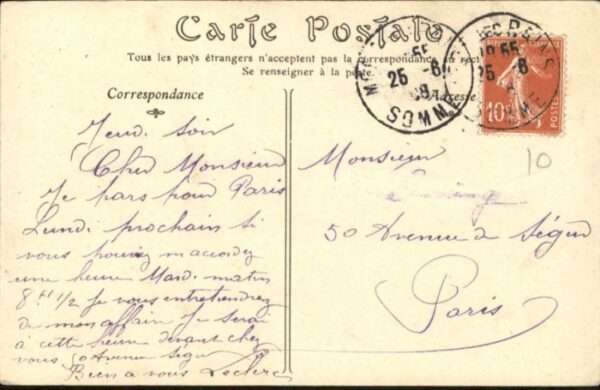 Carte Postale
Tous les pays étrangers n'acceptent pas la correspondance au recto
Se renseigner à la poste.
Correspondance
Jeudi soir
Cher Monsieur
Je pars pour Paris
Lundi prochain si
vous pouvez m'accordez
une heure Mardi matin
8 H 1/2 Je vous entretiendrez
de mon affaire Je serai
à cette heure devant chez
vous 50 Avenue Segur
Bien a vous Leclerc
Adresse
Monsieur
50 Avenue de Ségur
Paris
25 -6
SOMME
25 -6
10
POSTES
10